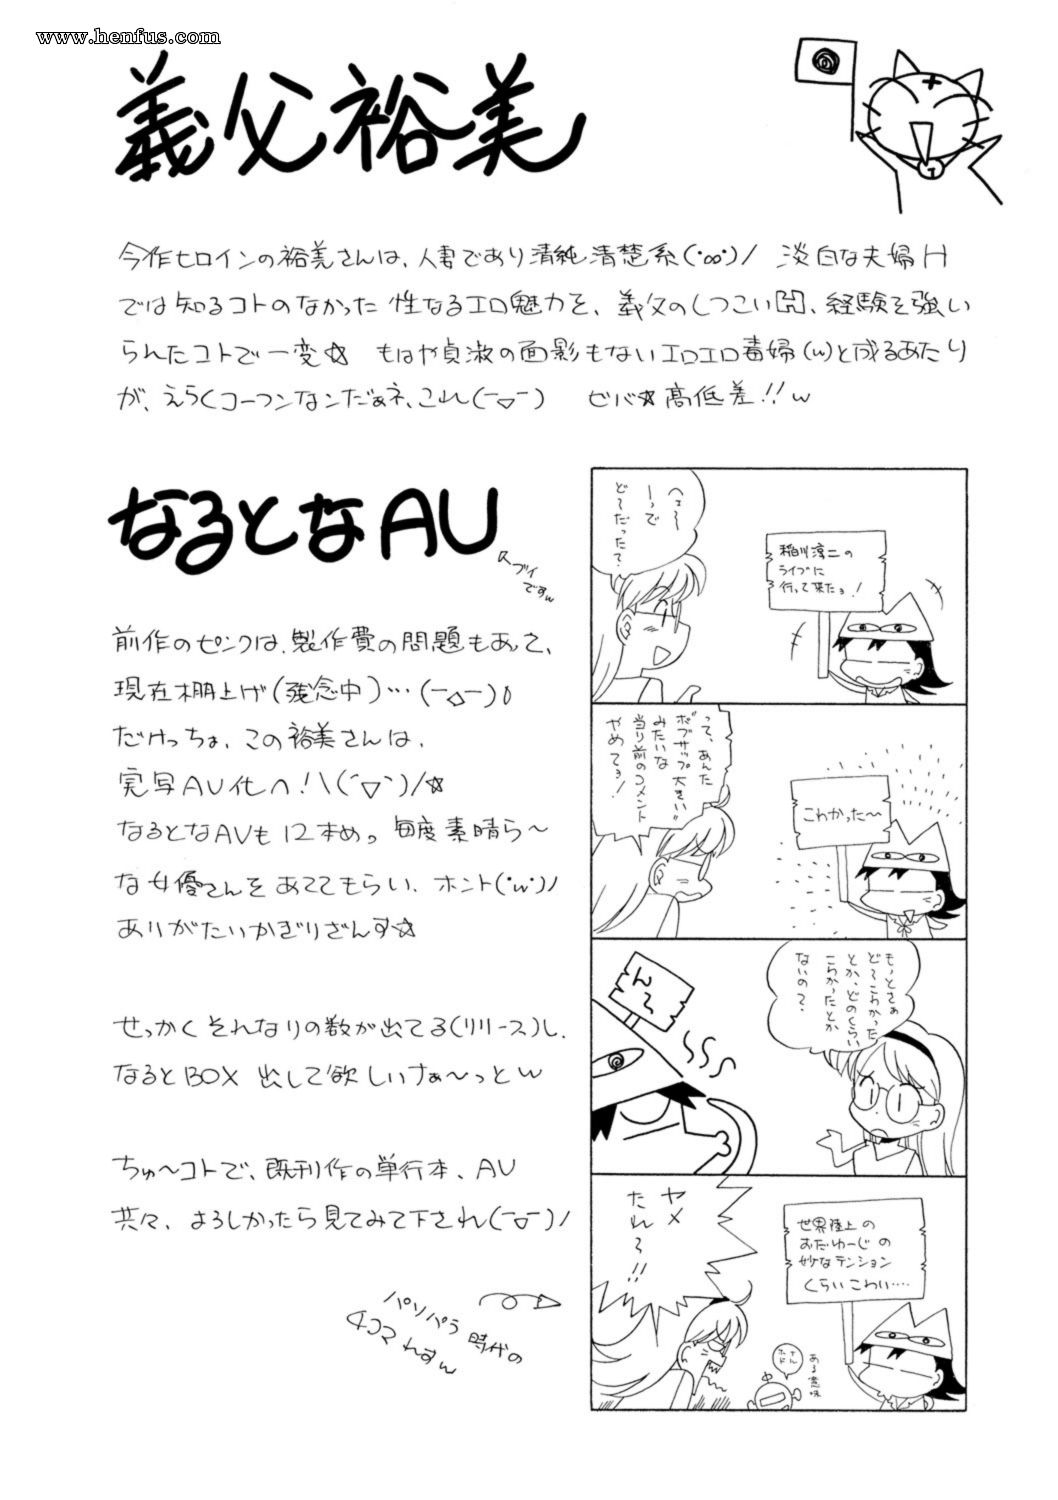 www.henfus.com
義父裕美
今作ヒロインの裕美さんは、人妻であり清純清楚系(・∞・)/ 淡白な夫婦H
では知るコトのなかった 性なるエロ魅力を、義父のしつこいH、経験を強い
られたコトで一変☆ もはや貞淑の面影もないエロエロ毒婦(w)と成るあたり
が、えらくコーフンなンだぁネ、これ(ー▽ー) ビバ☆高低差!!w
なるとなAU
スブイ
ですw
前作のピンクは、製作費の問題もあって、
現在棚上げ(残念中)…(ー△ー)0
だけっちょ、この裕美さんは、
実写AV化へ!\(´▽`)/☆
なるとなAVも12本めっ 毎度素晴ら〜
な女優さんをあててもらい、ホント(・w・)ノ
ありがたいかぎりざんす☆
せっかくそれなりの数が出てる(リリース)し、
なるとBOX 出して欲しいさぁ〜っとw
ちゅ〜コトで、既刊作の単行本、AV
共々、よろしかったら見てみて下され(ー▽ー)ノ
パソパラ時代の
4コマれすw
へェ〜
ーっで
ど〜だった?
稲川淳二の
ライブに
行って来たョ!
って、あんた
ボブサップ大きい"
みたいな
当り前のコメント
やめてョ!
こわかった〜
も〜っとさぁ
ど〜こわかった
とか、どのくらい
こわかったとか
ないの?
ん〜
ヤメ
たれ〜!!
世界陸上の
おだゆーじの
妙なテンション
くらいこわい‥‥
ある意味